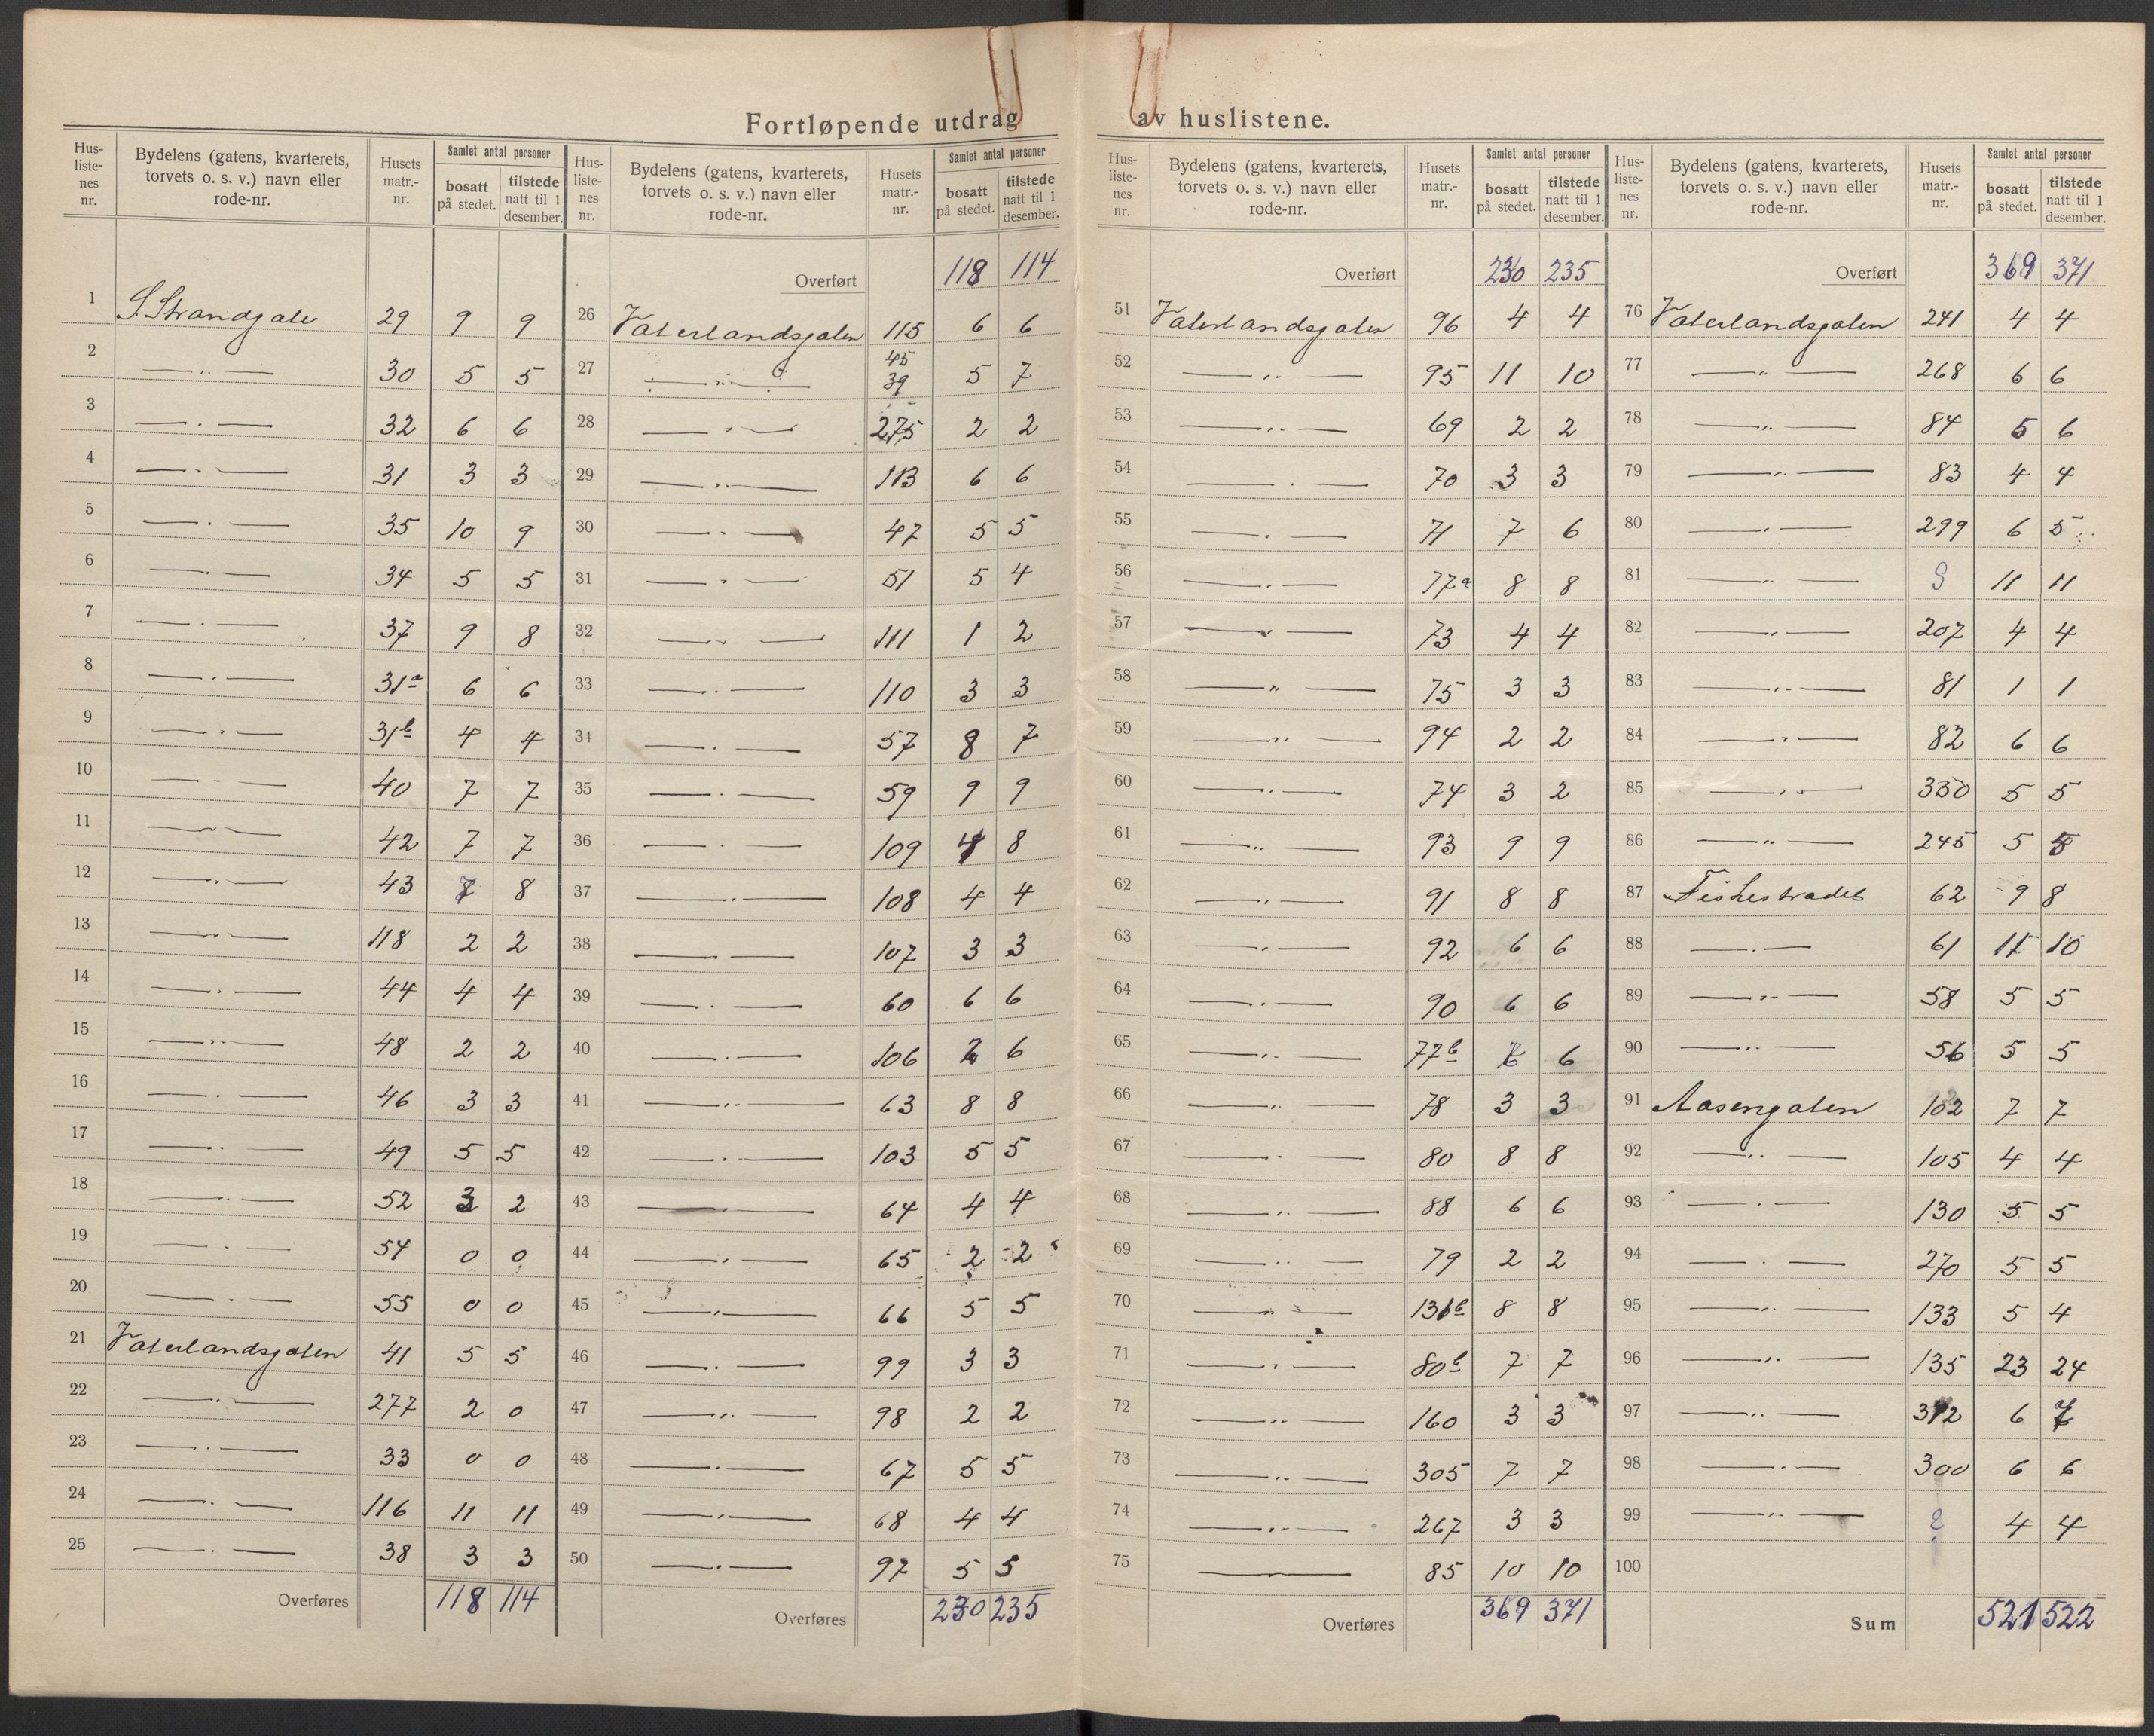 Fortløpende utdrag av huslistene.
Hus-liste-nes nr. | Bydelens (gatens, kvarterets, torvets o. s. v.) navn eller rode-nr. | Husets matr.-nr. | Samlet antal personer bosatt på stedet. | tilstede natt til 1 desember.
1 S. Strandgate 29 9 9
2 —„— 30 5 5
3 —„— 32 6 6
4 —„— 31 3 3
5 —„— 35 10 9
6 —„— 34 5 5
7 —„— 37 9 8
8 —„— 31a 6 6
9 —„— 31b 4 4
10 —„— 40 7 7
11 —„— 42 7 7
12 —„— 43 7 8
13 —„— 118 2 2
14 —„— 44 4 4
15 —„— 48 2 2
16 —„— 46 3 3
17 —„— 49 5 5
18 —„— 52 3 2
19 —„— 54 0 0
20 —„— 55 0 0
21 Vaterlandsgaten 41 5 5
22 —„— 277 2 0
23 —„— 33 0 0
24 —„— 116 11 11
25 —„— 38 3 3
Overføres 118 114
Hus-liste-nes nr. | Bydelens (gatens, kvarterets, torvets o. s. v.) navn eller rode-nr. | Husets matr.-nr. | Samlet antal personer bosatt på stedet. | tilstede natt til 1 desember.
Overført 118 114
26 Vaterlandsgaten 115 6 6
27 —„— 45 39 5 7
28 —„— 275 2 2
29 —„— 113 6 6
30 —„— 47 5 5
31 —„— 51 5 4
32 —„— 111 1 2
33 —„— 110 3 3
34 —„— 57 8 7
35 —„— 59 9 9
36 —„— 109 8
37 —„— 108 4 4
38 —„— 107 3 3
39 —„— 60 6 6
40 —„— 106 6
41 —„— 63 8 8
42 —„— 103 5 5
43 —„— 64 4 4
44 —„— 65 2 2
45 —„— 66 5 5
46 —„— 99 3 3
47 —„— 98 2 2
48 —„— 67 5 5
49 —„— 68 4 4
50 —„— 97 5 5
Overføres 230 235
Hus-liste-nes nr. | Bydelens (gatens, kvarterets, torvets o. s. v.) navn eller rode-nr. | Husets matr.-nr. | Samlet antal personer bosatt på stedet. | tilstede natt til 1 desember.
Overført 230 235
51 Vaterlandsgaten 96 4 4
52 —„— 95 11 10
53 —„— 69 2 2
54 —„— 70 3 3
55 —„— 71 7 6
56 —„— 77a 8 8
57 —„— 73 4 4
58 —„— 75 3 3
59 —„— 94 2 2
60 —„— 74 3 2
61 —„— 93 9 9
62 —„— 91 8 8
63 —„— 92 6 6
64 —„— 90 6 6
65 —„— 77b 6 6
66 —„— 78 3 3
67 —„— 80 8 8
68 —„— 88 6 6
69 —„— 79 2 2
70 —„— 8 8
71 —„— 80b 7 7
72 —„— 160 3 3
73 —„— 305 7 7
74 —„— 267 3 3
75 — 85 10 10
Overføres 369 371
Hus-liste-nes nr. | Bydelens (gatens, kvarterets, torvets o. s. v.) navn eller rode-nr. | Husets matr.-nr. | Samlet antal personer bosatt på stedet. | tilstede natt til 1 desember.
Overført 369 371
76 Vaterlandsgaten 241 4 4
77 —„— 268 6 6
78 —„— 84 5 6
79 —„— 83 4 4
80 —„— 299 6 5
81 —„— 11 11
82 —„— 207 4 4
83 —„— 81 1 1
84 —„— 82 6 6
85 —„— 330 5 5
86 —„— 245 5 5
87 Fiskestradet 62 9 8
88 —„— 61 11 10
89 —„— 58 5 5
90 —„— 56 5 5
91 Aasengaten 102 7 7
92 —„— 105 4 4
93 —„— 130 5 5
94 —„— 270 5 5
95 —„— 133 5 4
96 —„— 135 23 24
97 —„— 312 6 7
98 —„— 300 6 6
99 —„— ? 4 4
100
Sum 521 522